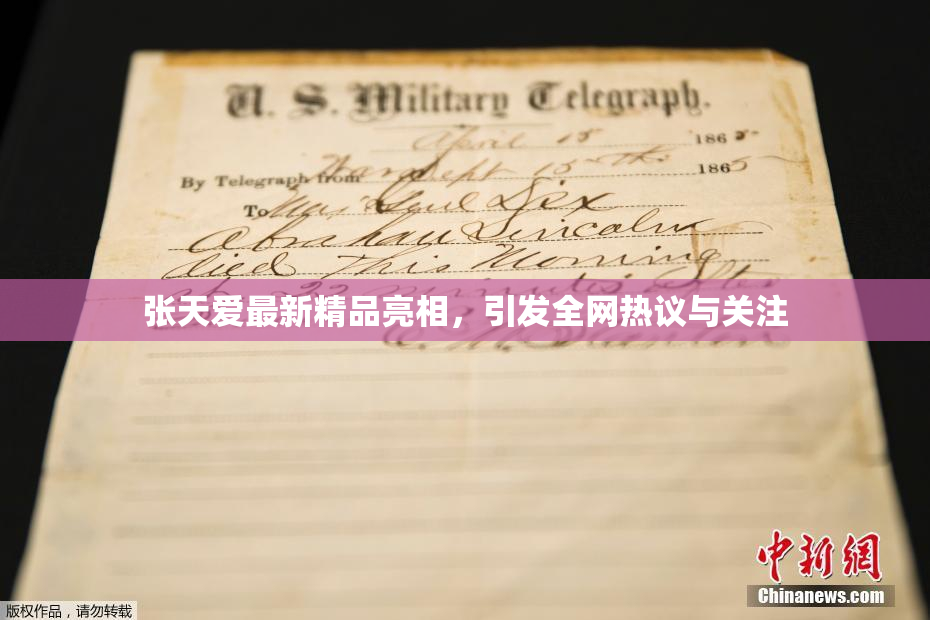 U. S. Military Telegraph.
April 15 1865
By Telegraph from War Dept 15th 1865
To Maj Genl Dix
Abraham Lincoln
died this morning
at 22 minutes after
张天爱最新精品亮相，引发全网热议与关注
E. M. Stanton
中新网
Chinanews.com
版权作品，请勿转载